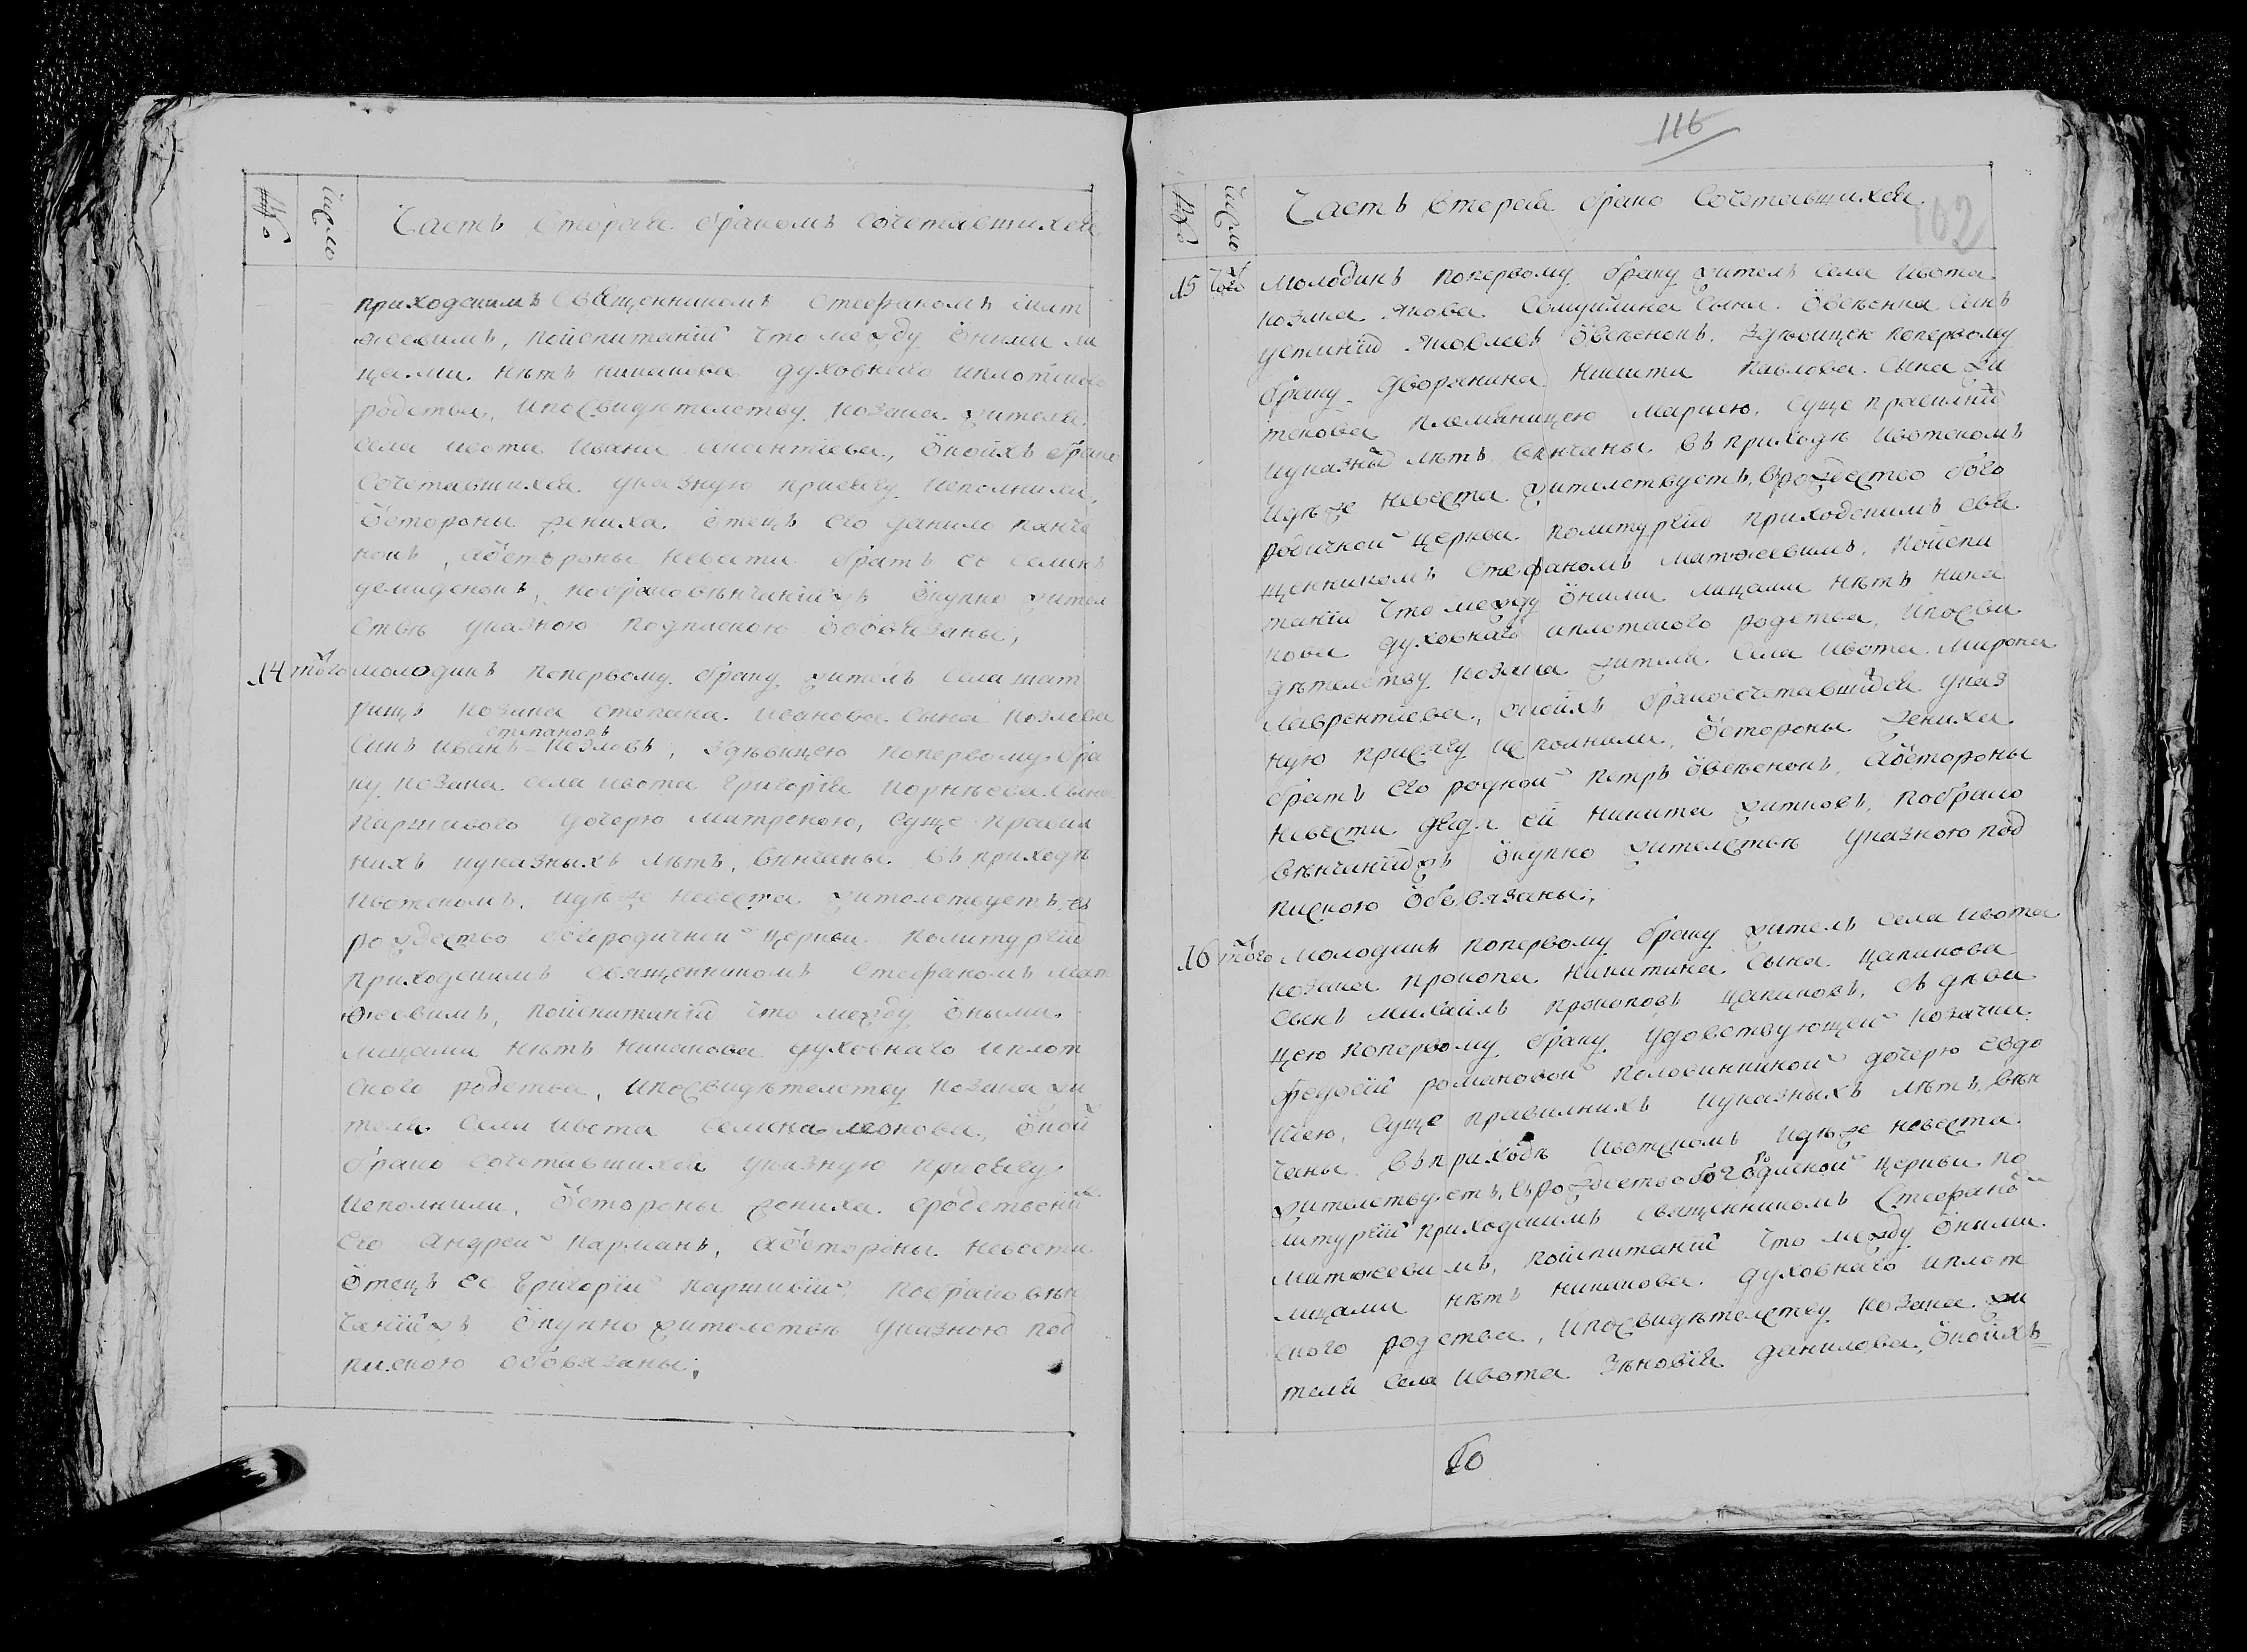 №
число
Часть вторая бракомъ сочетавшихся
приходскимъ священникомъ стефаномъ мат
ѳеевимъ, поиспитаніи что между оними ли
цами нѣтъ никакова духовнаго иплотскаго
родства, ипосвидѣтелству козака жителя
села ивота ивана анантіева, окоихъ брако
сочетавшихся указную присягу исполнили,
Ѿстороны жениха отецъ его данило панче
нокъ, аѾстороны невести братъ ее семенъ
демиденокъ, побраковѣнчаніижъ окупно жител
ствѣ указною подпискою обовязаны,
14 того молодикъ поперьвому браку житель села шат
рищъ козака степана иванова сына козлова
степановъ
синъ иванъ козловъ, здѣвицею поперьвому бра
ку козака села ивота григорія корнѣева сына
паршивого дочерю матреною, суще правил
нихъ иуказныхъ лѣтъ, вѣнчаны въ приходѣ
ивотскомъ, идѣже невеста жителствуетъ, въ
рождество богородичной церкви политургіи
приходскимъ священникомъ стефаномъ мат
ѳеевимъ, поиспитаніи что между оными
лицами нѣтъ никакова духовнаго иплот
ского родства, ипосвидѣтелству козака жи
теля села ивота семена леонова, окоихъ
брако сочетавшихся указную присягу
исполнили, Ѿстороны жениха сродственникъ
его андрей карманъ, аѾстороны невести
отецъ ее григорій паршивій, побраковѣн
чаніижъ окупно жителствѣ указною под
пискою обовязаны;
116
102
№
число
Часть вторая брако сочетавщихся
15 того молодикъ поперьвому браку житель села ивота
козака якова самуйлина сына овсѣенка синъ
устиній яковлевъ овсѣенокъ, здѣвицею поперьвому
браку дворянина никити павлова сына жи
ткова племѣницею мариею, суще правилнихъ
иуказныхъ лѣтъ вѣнчаны въ приходѣ ивотскомъ
идѣже невеста жителствуетъ, врождество бого
родичной церкви политургіи приходскимъ свя
щенникомъ стефаномъ матѳеевимъ, поиспи
таніи что между оними лицами нѣтъ ника
кова духовнаго иплотского родства, ипосви
дѣтелству козака жителя села ивота мирона
лаврентіева, окоихъ бракосочетавшихся указ
ную присягу исполнили, Ѿстороны жениха
братъ его родной петръ овсѣенокъ, аѾстороны
невести дядя ей никита житковъ, побрако
вѣнчаніижъ окупно жителствѣ указною под
пискою обовязаны;
16 того молодикъ поперьвому браку житель села ивота
козака прокопа никитина сына цапикова
сынъ михаилъ прокоповъ цапиковъ, съ дѣви
цею поперьвому браку удовствующей козачки
ѳедосіи романовой половинкиной дочерю евдо
кіею, суще правилнихъ иуказныхъ лѣтъ, вѣн
чаны въ приходѣ ивотскомъ идѣже невеста
жителствуетъ, врождество богородичной церкви по
литургіи приходскимъ священникомъ стефаномъ
матѳеевимъ, поиспитаніи что между оными
лицами нѣтъ никакова духовнаго иплот
ского родства, ипосвидѣтелству козака жи
теля села ивота зѣновія данилова, окоихъ
бо